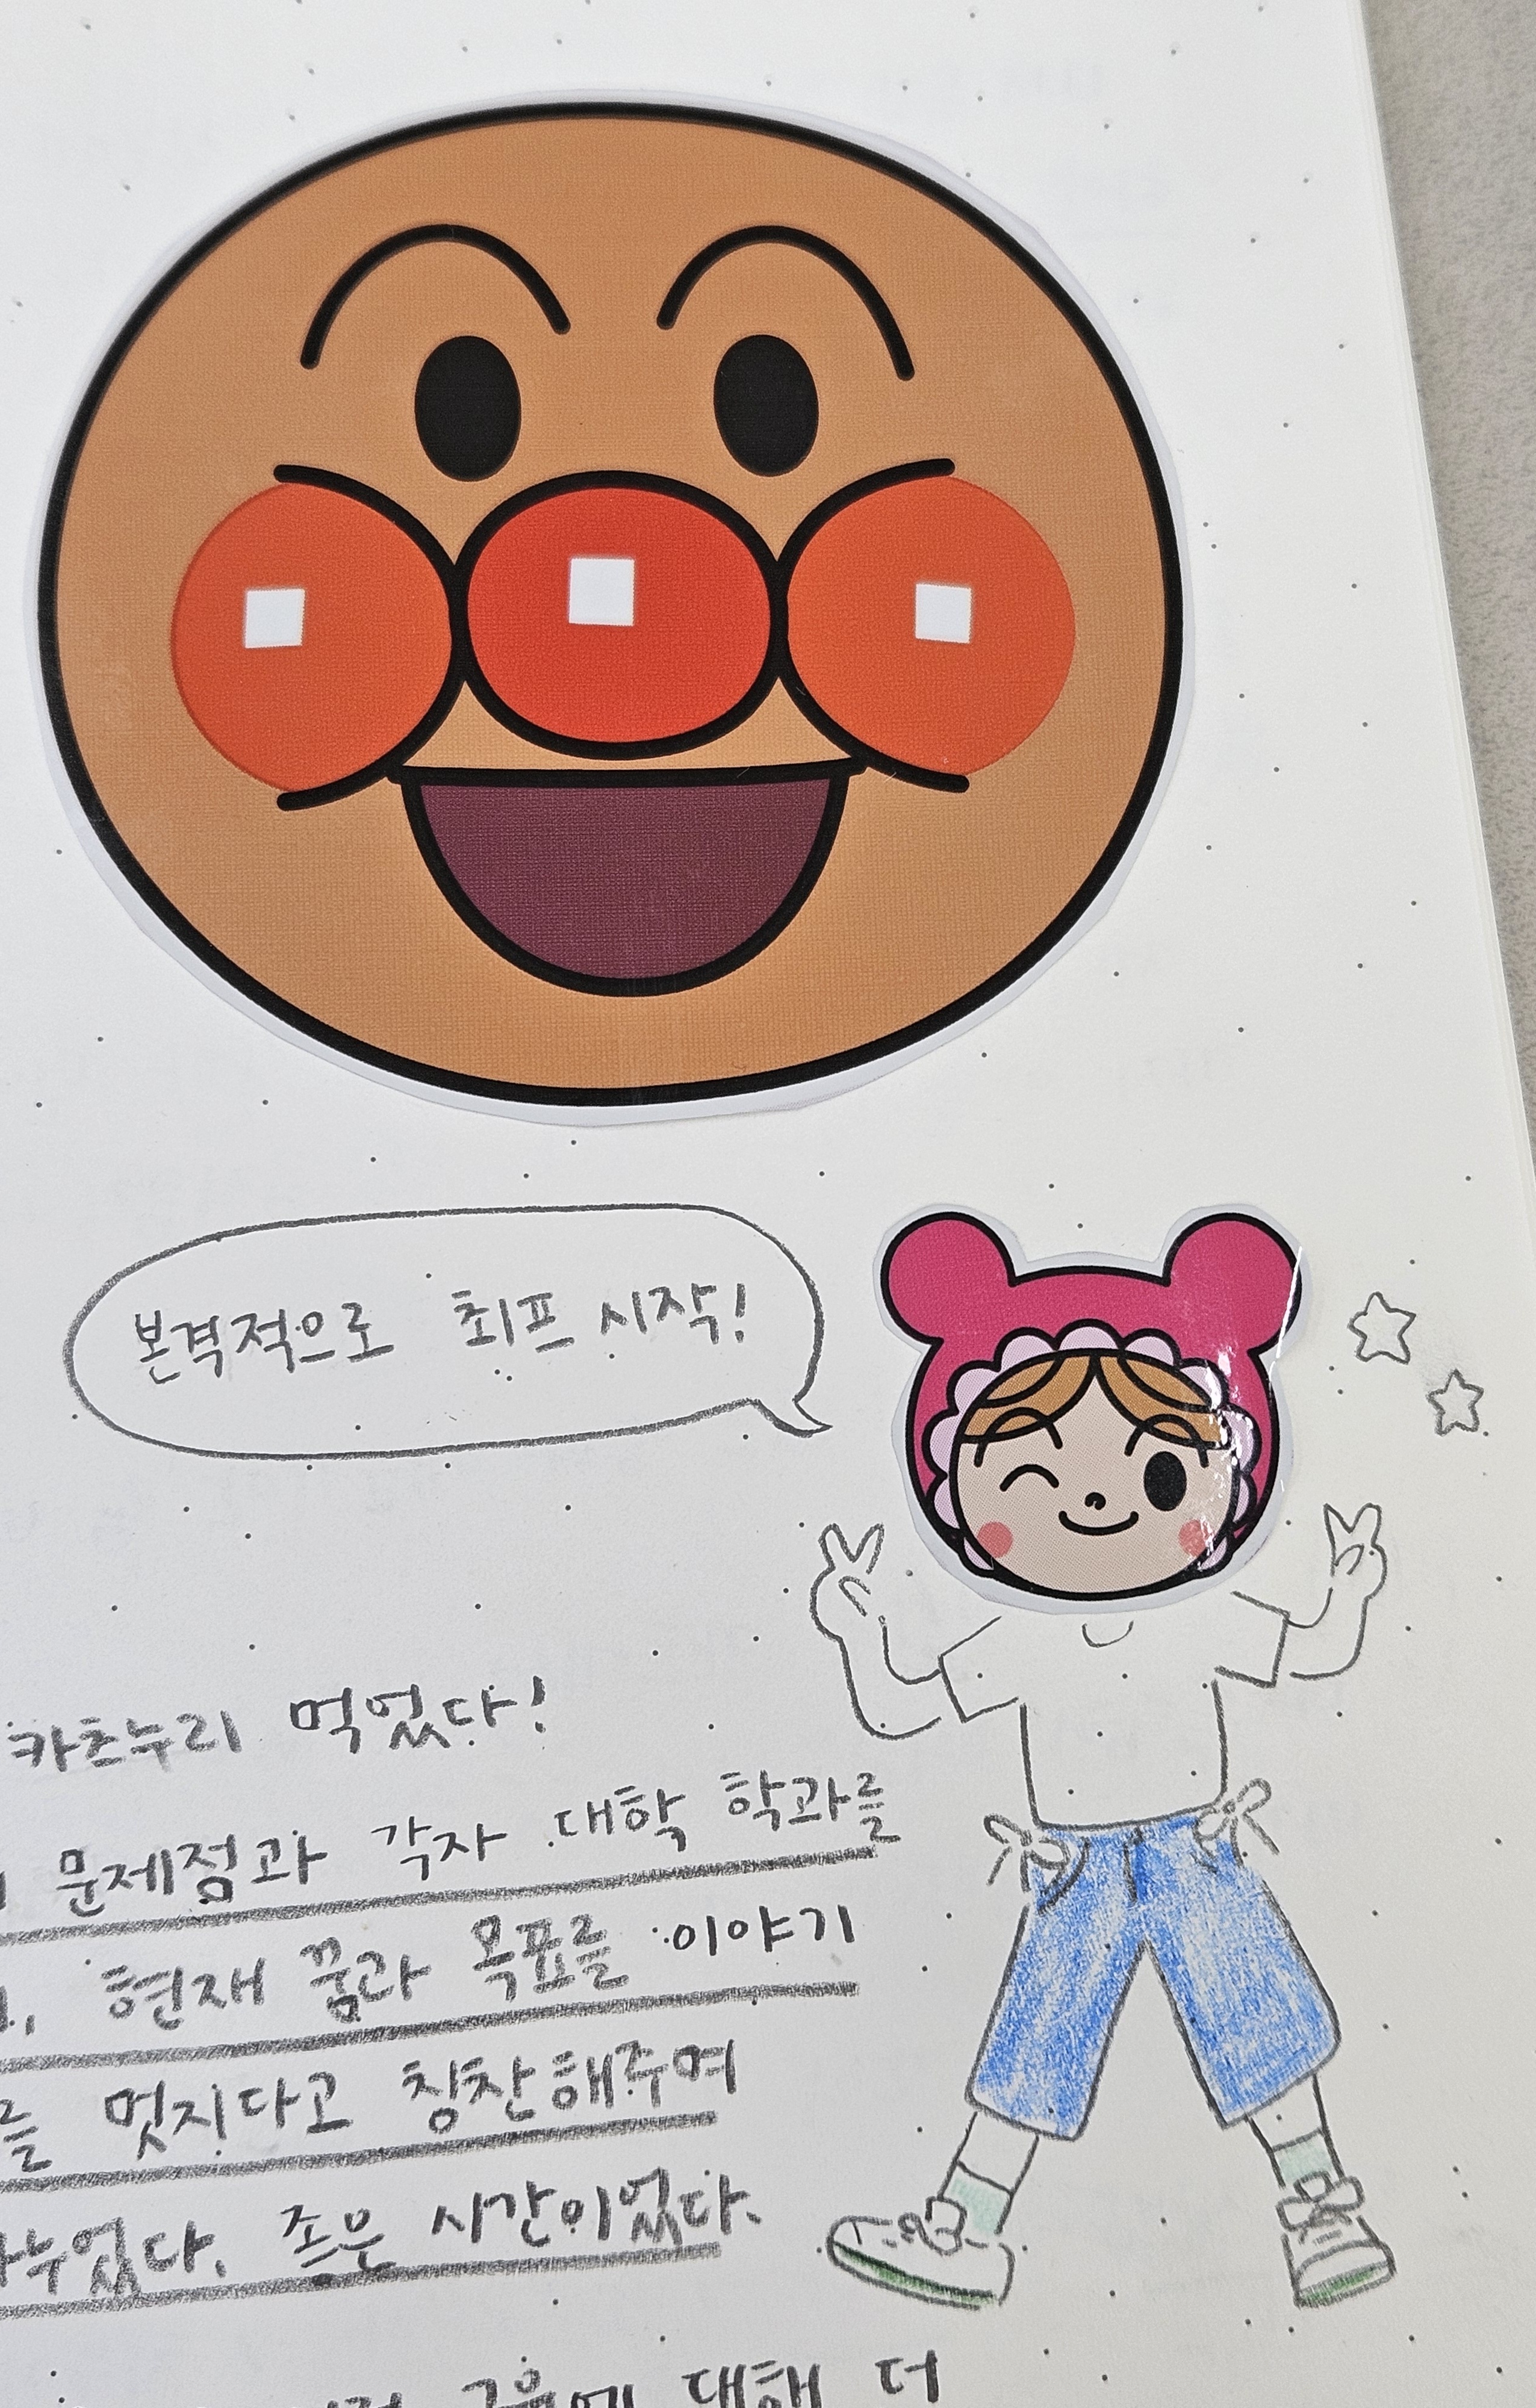 본격적으로 최프 시작!
카츠누리 먹었다!
문제점과 각자 대학 학과를
현재 꿈과 목표를 이야기
를 멋지다고 칭찬해주며
나누었다. 좋은 시간이었다.
대해 더